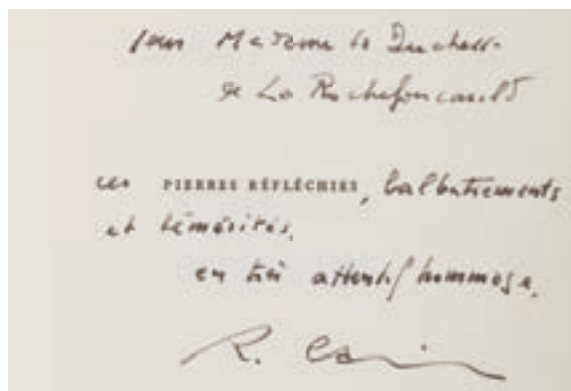 Pour Madame la Duchesse
de La Rochefoucauld
ces PIERRES RÉFLÉCHIES, balbutiements
et témérités,
en très attentif hommage.
R. Ca